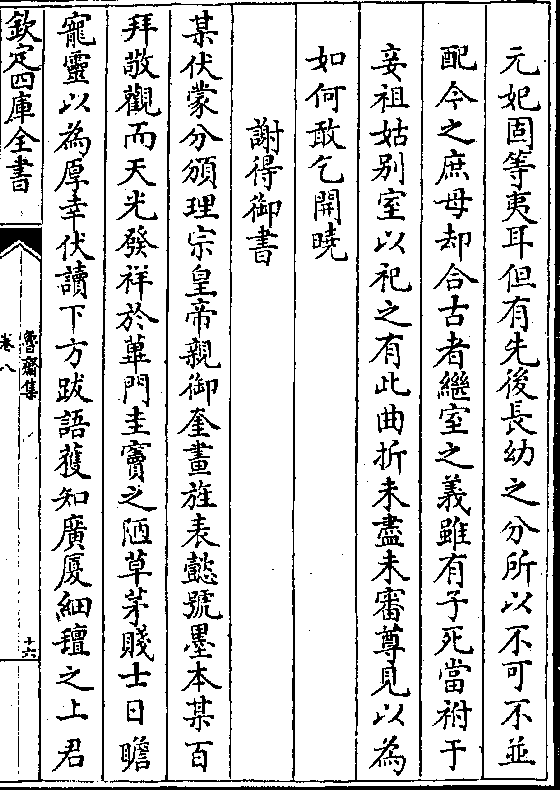 元妃固等夷耳但有先後長幼之分所以不可不並
配今之庶母却合古者繼室之義雖有子死當祔于
妾祖姑别室以祀之有此曲折未盡未審尊見以為
如何敢乞開曉
謝得御書
某伏蒙分頒理宗皇帝親御奎畫旌表懿號墨本某百
拜敬觀而天光發祥於蓽門圭竇之陋草茅賤士日瞻
寵靈以為厚幸伏讀下方跋語獲知廣厦細氊之上君
欽定四庫全書
魯齋集
卷八
十六